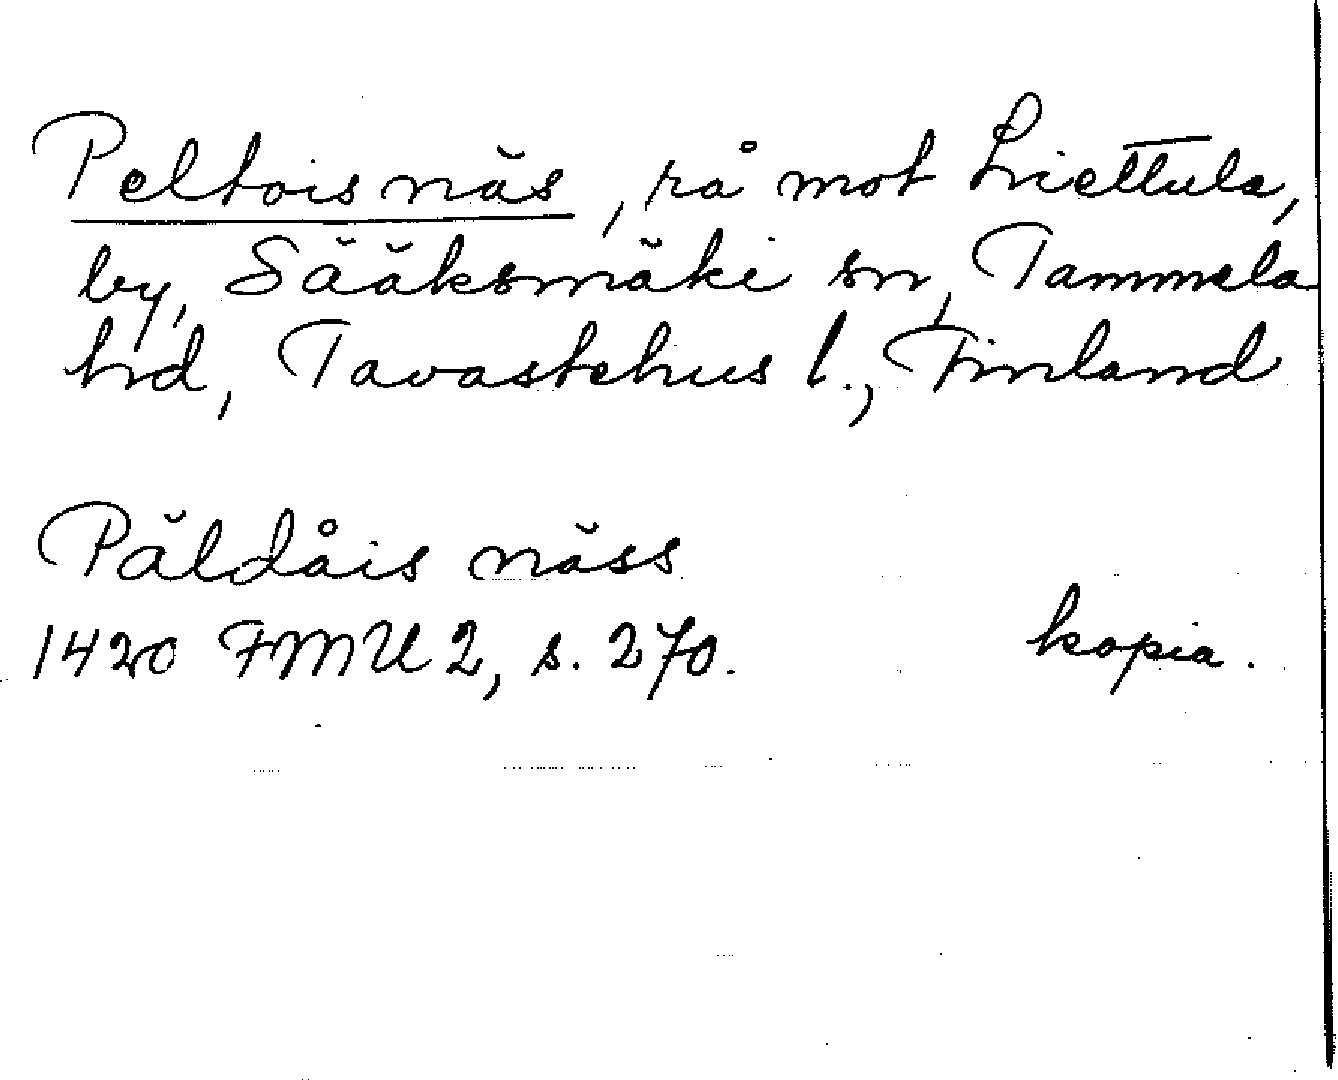 Peltois näs, rå mot Liettula,
by, Sääksmäki sn, Tammela
hd, Tavastehus l., Finland
Päldåis näss
1420 FMU 2, s. 270. kopia.